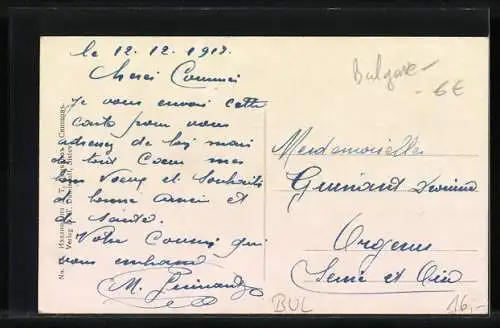 le 12.12.1918.
Cheres Cousines
Je vous envoi cette
carte pour vous
adresser de loin mais
de tout coeur mes
Voeux et souhaits
de bonne année et
de santé.
Votre Cousin qui
vous embrasse
M. Guinant
Bulgare
6€
Mesdemoiselles
Guinant
Orgerus
Seine et Oise
BUL
16,-